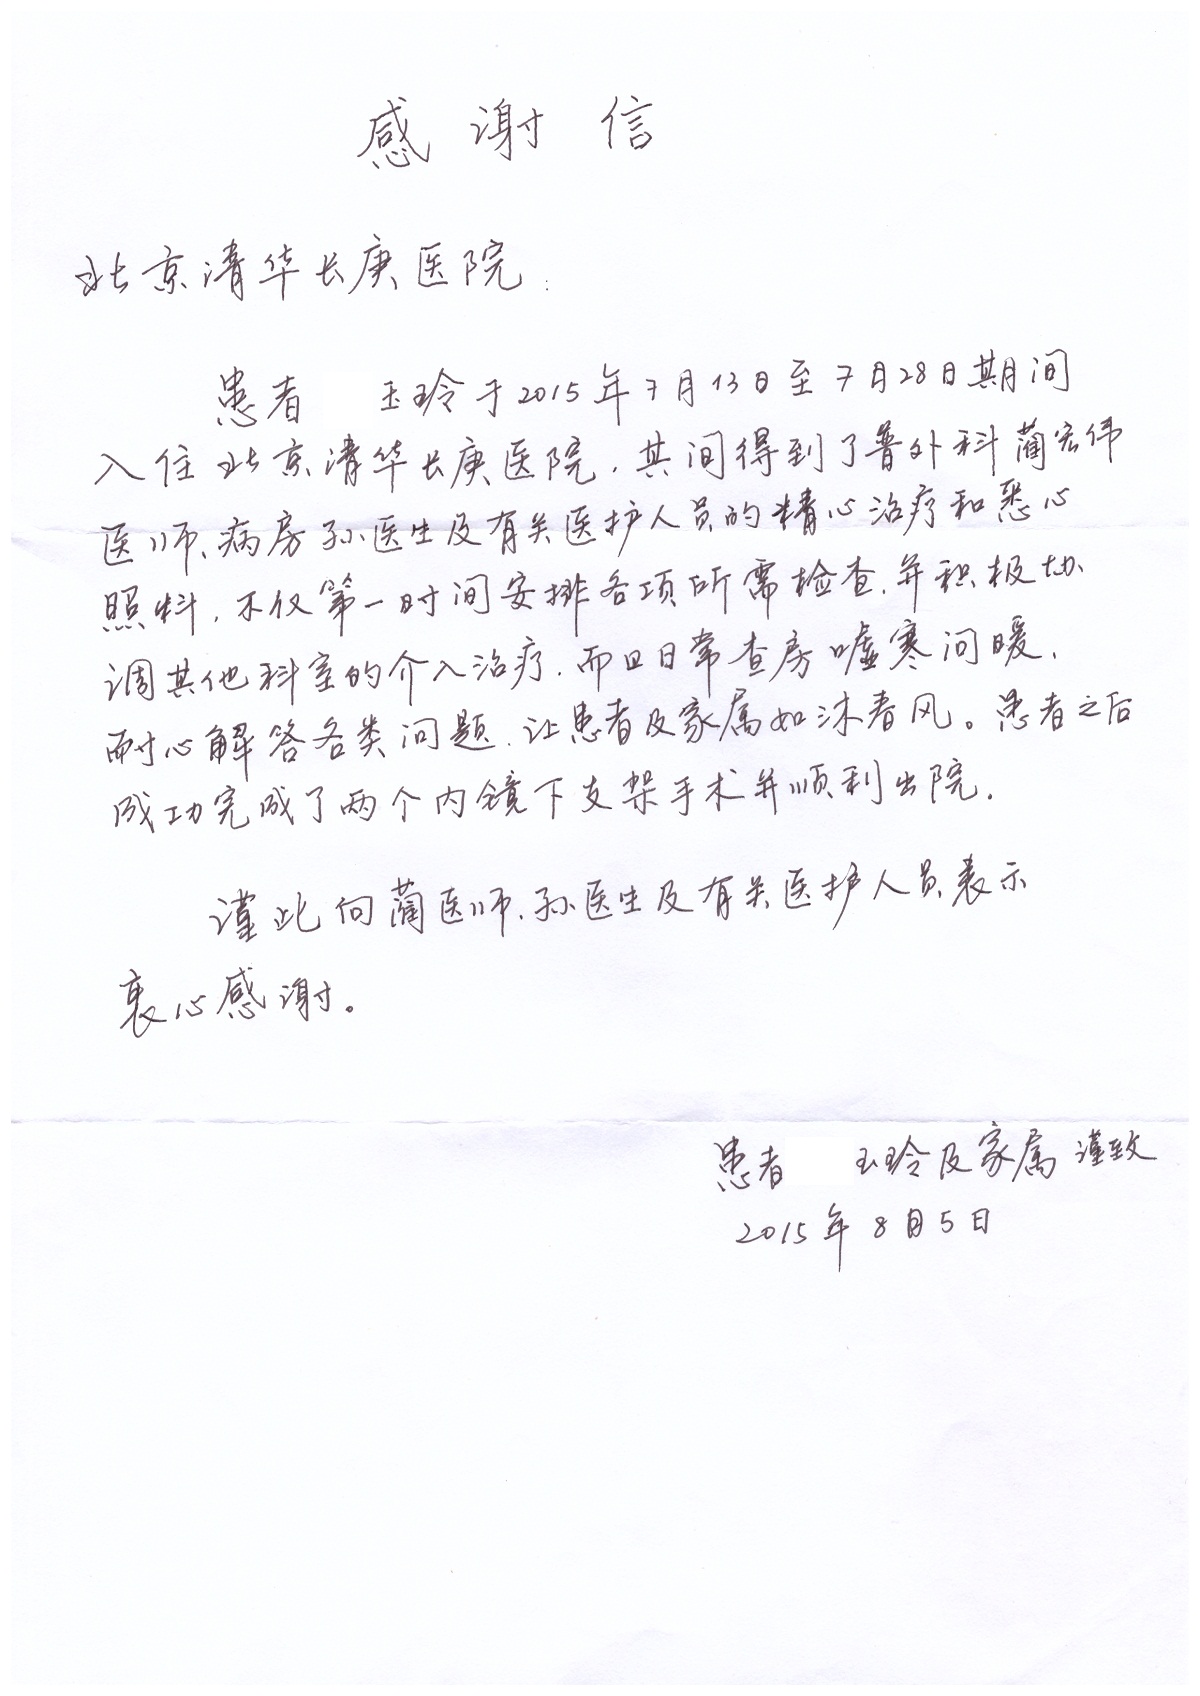 感谢信
北京清华长庚医院：
患者 玉玲于2015年7月13日至7月28日期间
入住北京清华长庚医院，其间得到了普外科蔺宏伟
医师、病房孙医生及有关医护人员的精心治疗和悉心
照料，不仅第一时间安排各项所需检查，并积极协
调其他科室的介入治疗，而且日常查房嘘寒问暖，
耐心解答各类问题，让患者及家属如沐春风。患者之后
成功完成了两个内镜下支架手术并顺利出院。
谨此向蔺医师、孙医生及有关医护人员表示
衷心感谢。
患者 玉玲及家属 谨致
2015年8月5日